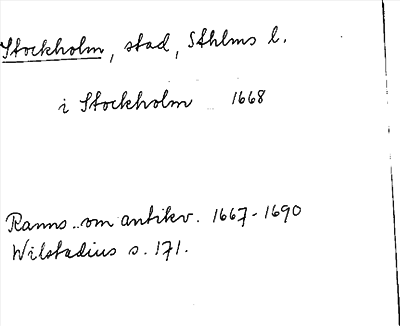 Stockholm, stad, Sthlms l.
i Stockholm 1668
Ranns.. om antikv. 1667-1690
Wilstadius s. 171.